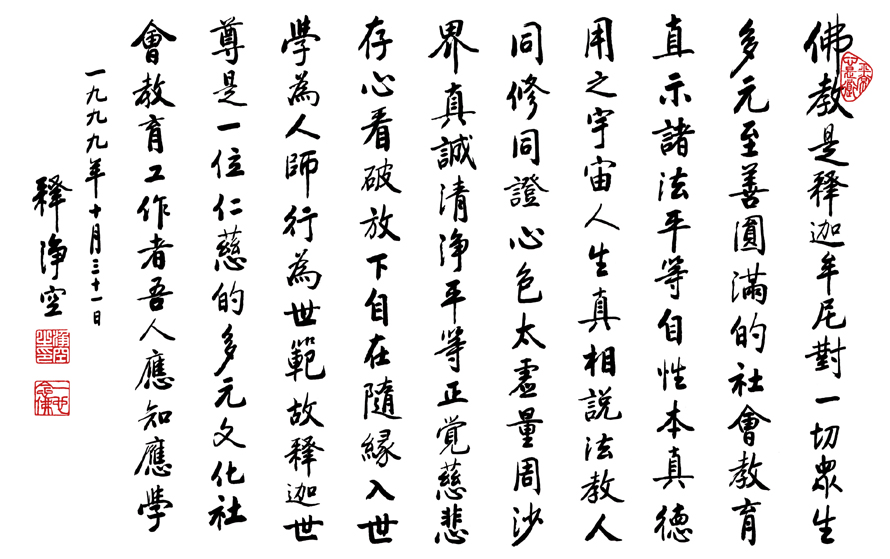 佛教是释迦牟尼對一切衆生
多元至善圓滿的社會教育
直示諸法平等自性本真德
用之宇宙人生真相説法教人
同修同證心色太虛量周沙
界真誠清淨平等正覺慈悲
存心看破放下自在隨緣入世
學為人師行為世範故释迦世
尊是一位仁慈的多元文化社
會教育工作者吾人應知應學
一九九九年十月三十一日
释淨空